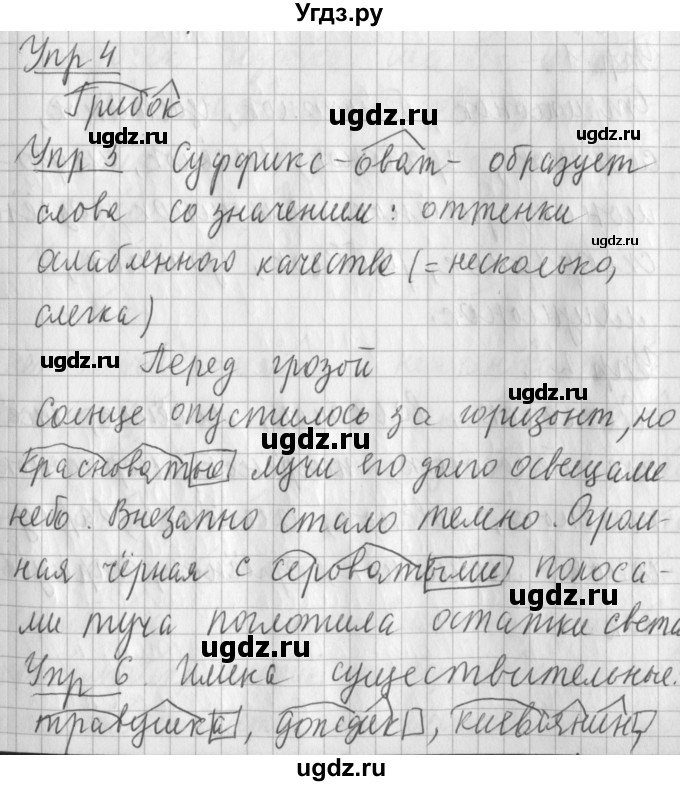 Угдз.ру
Упр 4
Грибок
ugdz.ru ugdz.ru
Упр 5 Суффикс -оват- образует
слова со значением: оттенки
ugdz.ru
ослабленного качества (= несколько,
слегка)
ugdz.ru Перед грозой
ugdz.ru
Солнце опустилось за горизонт, но
ugdz.ru
красноватые лучи его долго освещали
небо. Внезапно стало темно. Огром-
ная чёрная с сероватыми полоса-
ugdz.ru
ми туча поглотила остатки света
ugdz.ru
Упр 6 Имена существительные.
травушка, дождик, киевлянин,
ugdz.ru